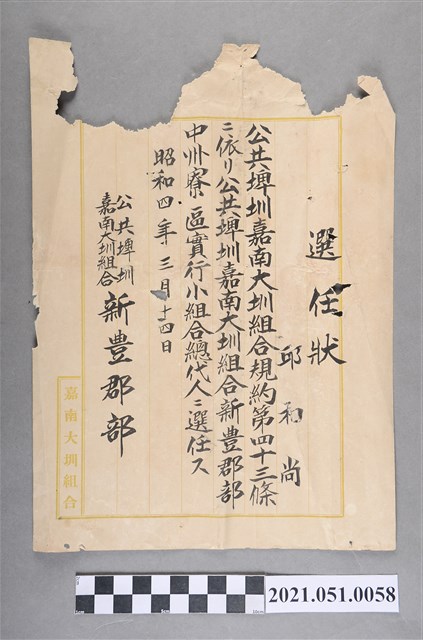 選任狀
邱和尚
公共埤圳嘉南大圳組合規約第四十三條
ニ依リ公共埤圳嘉南大圳組合新豊郡部
中州寮區實行小組合總代人ニ選任ス
昭和四年三月十四日
公共埤圳
嘉南大圳組合
新豊郡部
嘉南大圳組合
2021.051.0058